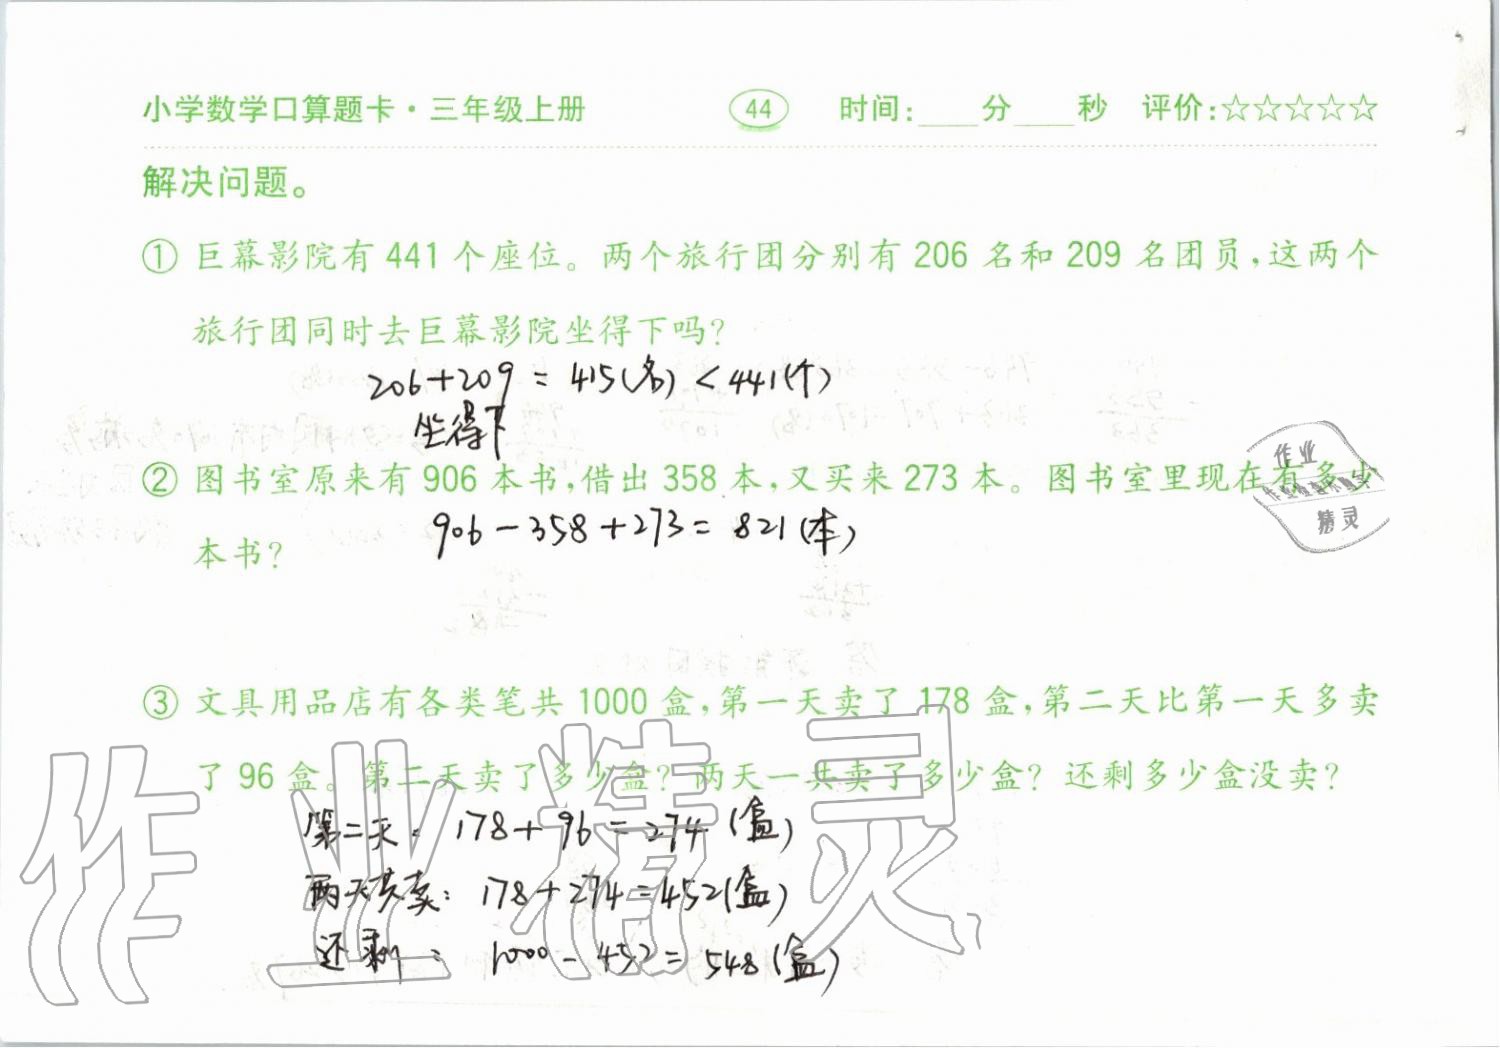 小学数学口算题卡·三年级上册 44 时间:____分____秒 评价:☆☆☆☆☆
解决问题。
① 巨幕影院有 441 个座位。两个旅行团分别有 206 名和 209 名团员,这两个
旅行团同时去巨幕影院坐得下吗?
206+209=415(名)<441(个)
坐得下
② 图书室原来有 906 本书,借出 358 本,又买来 273 本。图书室里现在有多少
906-358+273=821(本)
本书?
作业
精灵
③ 文具用品店有各类笔共 1000 盒,第一天卖了 178 盒,第二天比第一天多卖
了 96 盒。第二天卖了多少盒?两天一共卖了多少盒?还剩多少盒没卖?
第二天:178+96=274(盒)
两天共卖:178+274=452(盒)
还剩:1000-452=548(盒)
作业精灵